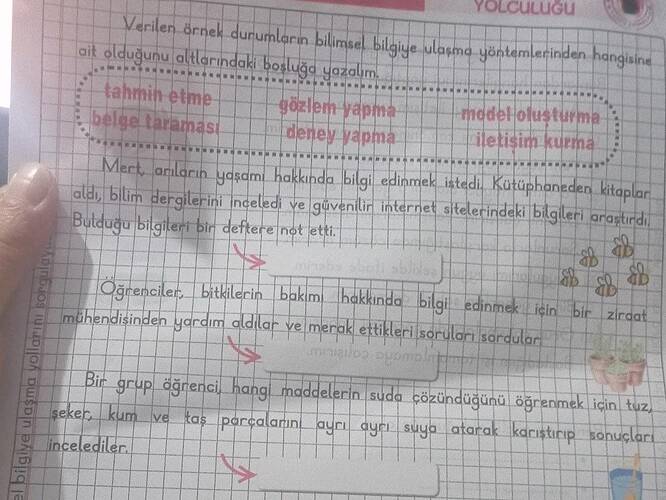 YOLCULUĞU
Verilen örnek durumların bilimsel bilgiye ulaşma yöntemlerinden hangisine
ait olduğunu altlarındaki boşluğa yazalım.
tahmin etme gözlem yapma model oluşturma
belge taraması deney yapma iletişim kurma
Mert, arıların yaşamı hakkında bilgi edinmek istedi. Kütüphaneden kitaplar
aldı, bilim dergilerini inceledi ve güvenilir internet sitelerindeki bilgileri araştırdı.
Bulduğu bilgileri bir deftere not etti.
Öğrenciler, bitkilerin bakımı hakkında bilgi edinmek için bir ziraat
mühendisinden yardım aldılar ve merak ettikleri soruları sordular.
Bir grup öğrenci, hangi maddelerin suda çözündüğünü öğrenmek için tuz,
şeker, kum ve taş parçalarını ayrı ayrı suya atarak karıştırıp sonuçları
incelediler.
bilgiye ulaşma yollarını sorgulay